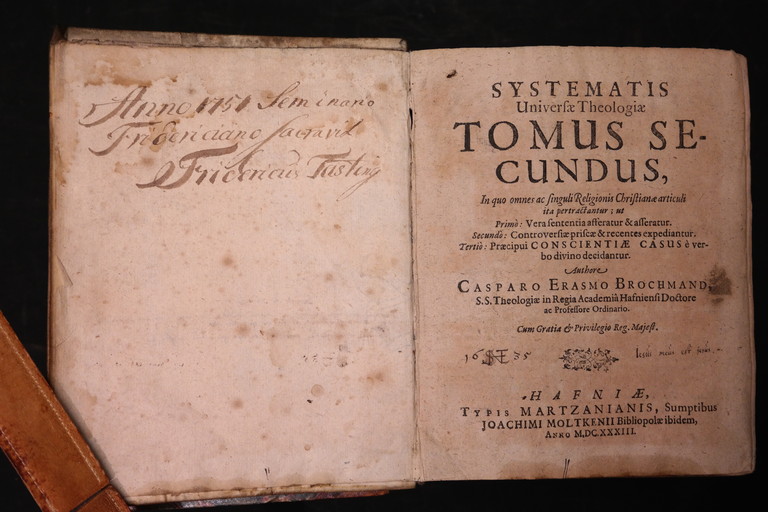 Anno 1751 Seminario
Fridericiano sacravit
Fridericus Tusting
SYSTEMATIS
Universæ Theologiæ
TOMUS SE-
CUNDUS,
In quo omnes ac singuli Religionis Christianæ articuli
ita pertractantur; ut
Primò: Vera sententia afferatur & asseratur.
Secundò: Controversiæ priscæ & recentes expediantur.
Tertiò: Præcipui CONSCIENTIÆ CASUS è ver-
bo divino decidantur.
Authore
CASPARO ERASMO BROCHMAND,
S.S. Theologiæ in Regia Academiâ Hafniensi Doctore
ac Professore Ordinario.
Cum Gratia & Privilegio Reg. Majest.
16 35
HAFNIÆ,
TYPIS MARTZANIANIS, Sumptibus
JOACHIMI MOLTKENII Bibliopolæ ibidem,
ANNO M.DC.XXXIII.